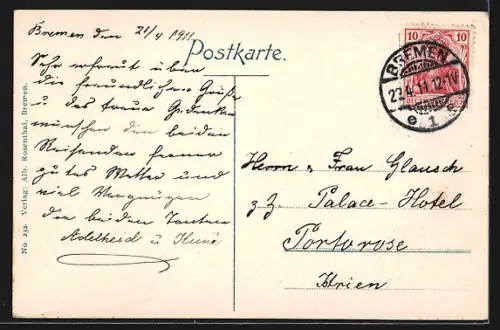 Bremen den 21/4 1911
Postkarte.
Sehr erfreut über
die freundlichen Grüße
u das treue Gedenken
wünschen den beiden
Reisenden ferner
gutes Wetter und
viel Vergnügen
die beiden Tanten
Adelheid u
No. 232. Verlag: Alb. Rosenthal, Bremen.
10 10
BREMEN
22.4.11.12-1V
e 1
Herrn u Frau Glausch
z. Z. Palace-Hotel
Portorose
Istrien